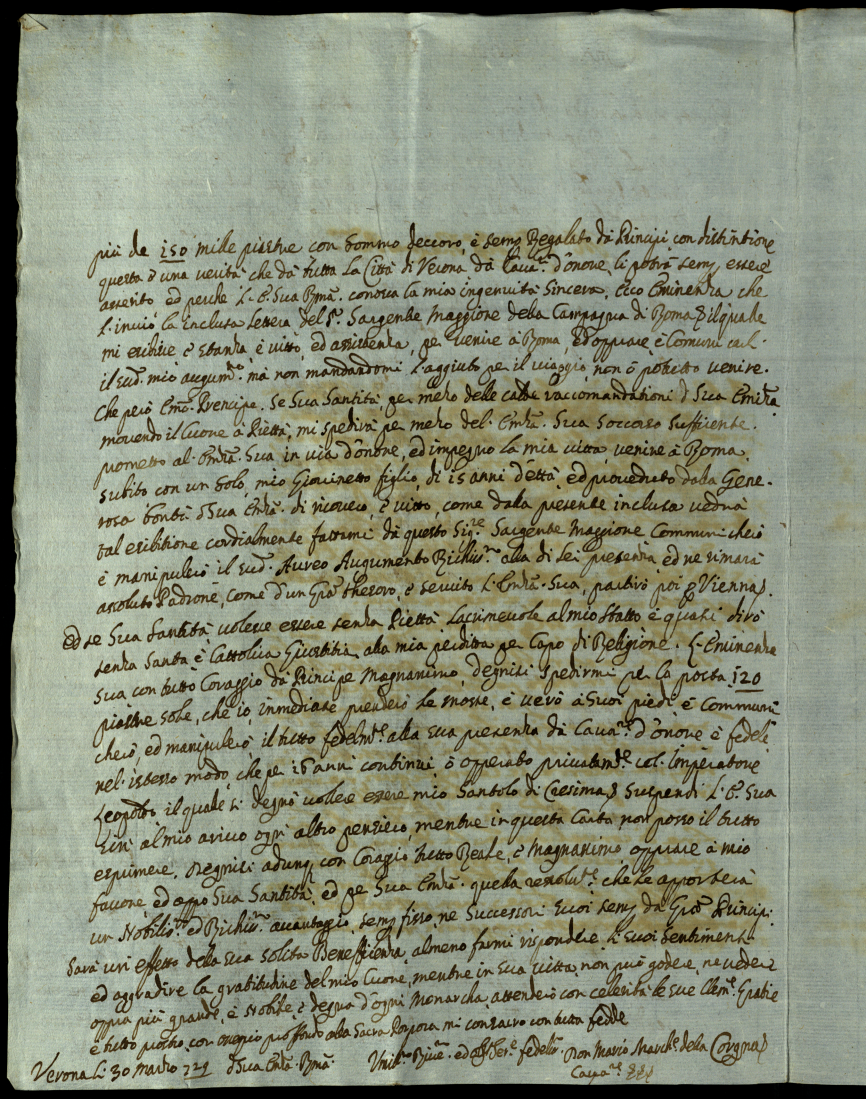 più de 150 mille piastre con sommo deccoro, è semp Regalato dà Principi con distintione
questa è una verità che dà tutta la Città di Verona dà Cavar. d'onore li potrà semp essere
asserito ed perche L. E. Sua Rma. conosca la mia ingenuità sincera, Ecco Eminenza che
L'invio la inclusa lettera del Sr. Sargente Maggiore della Campagna di Roma, il quale
mi esibisce è stanza, è vitto, ed assistenza, per venire à Roma, ed oprare è Comunical.
il sud. mio augumto. mà non mandandomi l'aggiuto per il viaggio non ò pottutto venire.
Che però Emo. Prencipe. Se Sua Santità per mezo delle calde raccomandationi d Sua Eminza
movendo il Cuore à Pietta, mi spedirà per mezo del. Emza. Sua soccorso suffitiente.
prometto al. Emza. Sua in via d'onore, ed impegno la mia vitta, venire à Roma,
subito con un solo, mio Giovinetto figlio, di 15 anni d'ettà ed proveduto dalla Gene-
rosa bontà d Sua Emza. di ricovero, è vitto, come dalla presente inclusa vedrà
tal esibitione cordialmente fattami dà questo Sigre. Sargente Maggiore Communicherò
è manipulerò il sud. Aureo Augumento Richissmo. alla di Lei presenza, ed ne rimarà
assoluto Padrone, come d'un Gran thesoro, è servito L. Emza. Sua, partirò poi p Vienna.
ed se Sua Santità volesse essere senza Pietta Lacrimevole al mio statto è quasi dirò
senza Santa è Cattolica Giustitia alla mia perditta per Capo di Religione. L. Eminenza
Sua con tutto Coraggio dà Principe Magnanimo degnisi spedirmi per la posta 120
piastre sole, che io inmediate prenderò le mosse, è verò à Suoi piedi è Communi
cherò, ed manipulerò il tutto fedelmte. alla sua presenza dà Cavar. d'onore è fedele
nel. istesso modo, che per 16 anni continui ò opperato privatamte. col. Imperatore
Leopoldo il quale si degnò volere essere mio Santolo di Cresima. Suspendi L. E. Sua
uri al mio arivo ogni altro pensiero, mentre in questa Carta non posso il tutto
esprimere. Degnisi adunq con Coragio tutto Reale, è Magnanimo oprare à mio
favore, ed appo Sua Santità, ed per Sua Emza. quella resolute. che le apporterà
un Nobilismo. ed Richismo. avantaggio, semp fisso, ne Successori suoi semp da Gran Principi.
Sarà uri effetto della sua solita Beneffienza, almeno farmi rispondere li Suoi Sentimenti
ed aggradire la gratitudine del mio Cuore, mentre in sua vitta, non può godere, ne vedere
oppra più grande, è Nobile, è degna d'ogni Monarcha, attenderò con celerità le sue Clem. Gratie
è tutto pronto, con osequio proffondo alla Sacra Porpora mi consacro con tutta fedde
Verona Li 30 Marzo 729 d Sua Emza. Rma. Umilo. fedelmo. Don Mario Marche. della Corgna
Cavare.